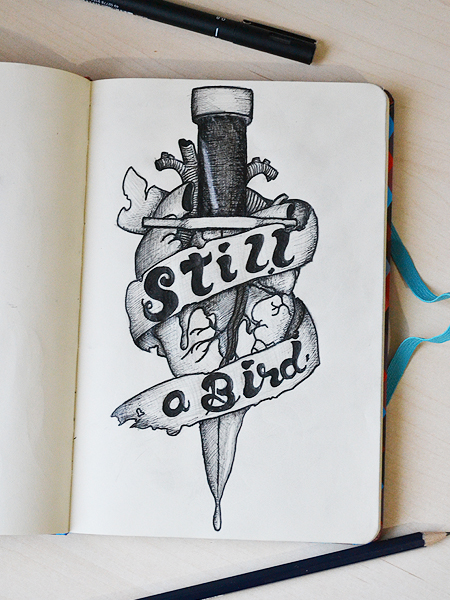 Still
a Bird